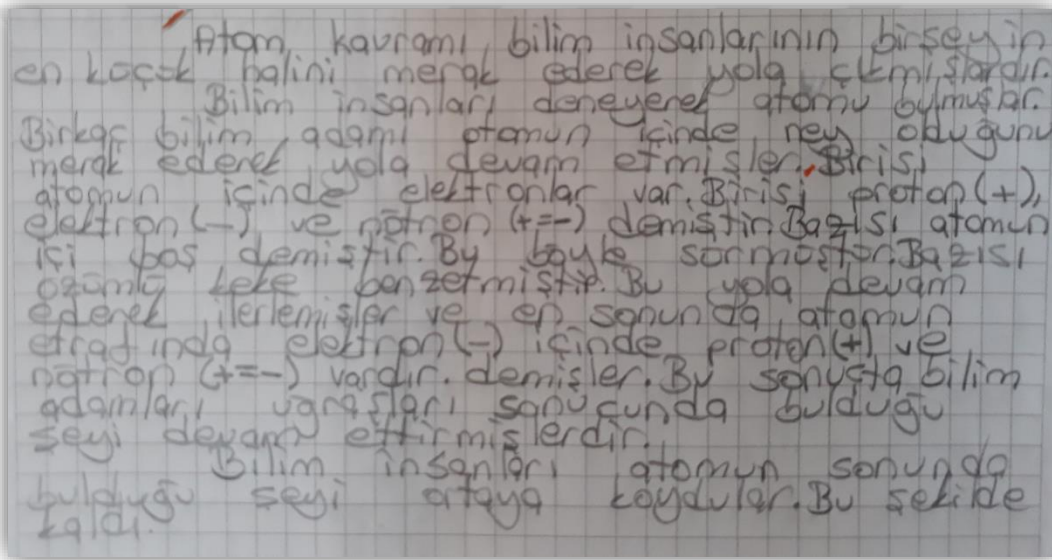 Atom kavramı bilim insanlarının birşeyin
en koçok halini merak ederek yola çıkmışlardır.
Bilim insanları deneyerek atomu bulmuşlar.
Birkaç bilim adamı atomun içinde ney oduğunu
merak ederek yola devam etmişler. Birisi
atomun içinde elektronlar var. Birisi proton(+),
elektron(-) ve nötron (+=-) demiştir. Bazısı atomun
içi boş demiştir. Bu böyle sormoştor. Bazısı
özömlö keke benzetmiştir. Bu yola devam
ederek ilerlemişler ve en sonunda atomun
etrafında elektron(-) içinde proton(+) ve
nötron (+=-) vardır. demişler. Bu sonuçta bilim
adamları uğraşları sonucunda bulduğu
şeyi devam ettirmişlerdir.
Bilim insanları atomun sonunda
bulduğu şeyi ortaya koydular. Bu şekilde
kaldı.